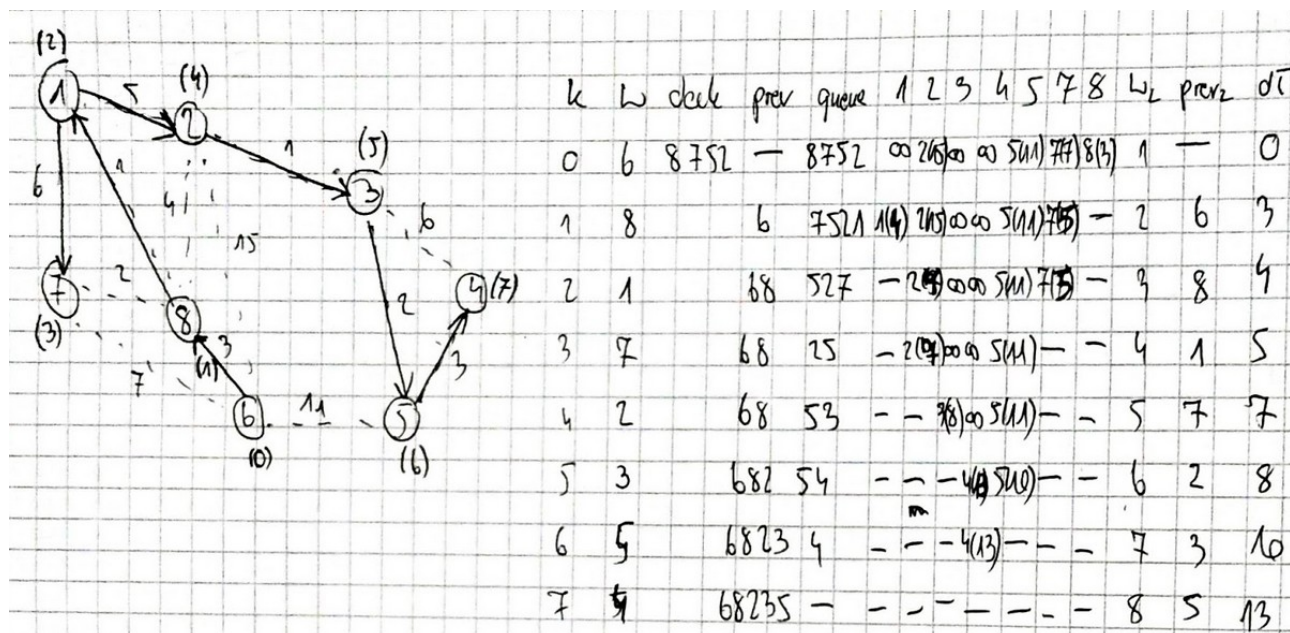 (2)
1 5 (4)
2 1 (5)
3
6 1 4 15 6
7 2 8 2 4 (7)
(3) 3 3
7 (1)
6 11 5
(0) (6)
k w deck prev queue 1 2 3 4 5 7 8 w2 prev2 dT
0 6 8752 — 8752 ∞ 2(15) ∞ ∞ 5(11) 7(7) 8(3) 1 — 0
1 8 6 7521 1(4) 2(15) ∞ ∞ 5(11) 7(5) — 2 6 3
2 1 68 527 — ∞ ∞ 5(11) 7(5) — 3 8 4
3 7 68 25 — ∞ ∞ 5(11) — — 4 1 5
4 2 68 53 — — 3(8) ∞ 5(11) — — 5 7 7
5 3 682 54 — — — 5(10) — — 6 2 8
6 5 6823 4 — — — 4(13) — — — 7 3 10
7 68235 — — — — — — — — 8 5 13